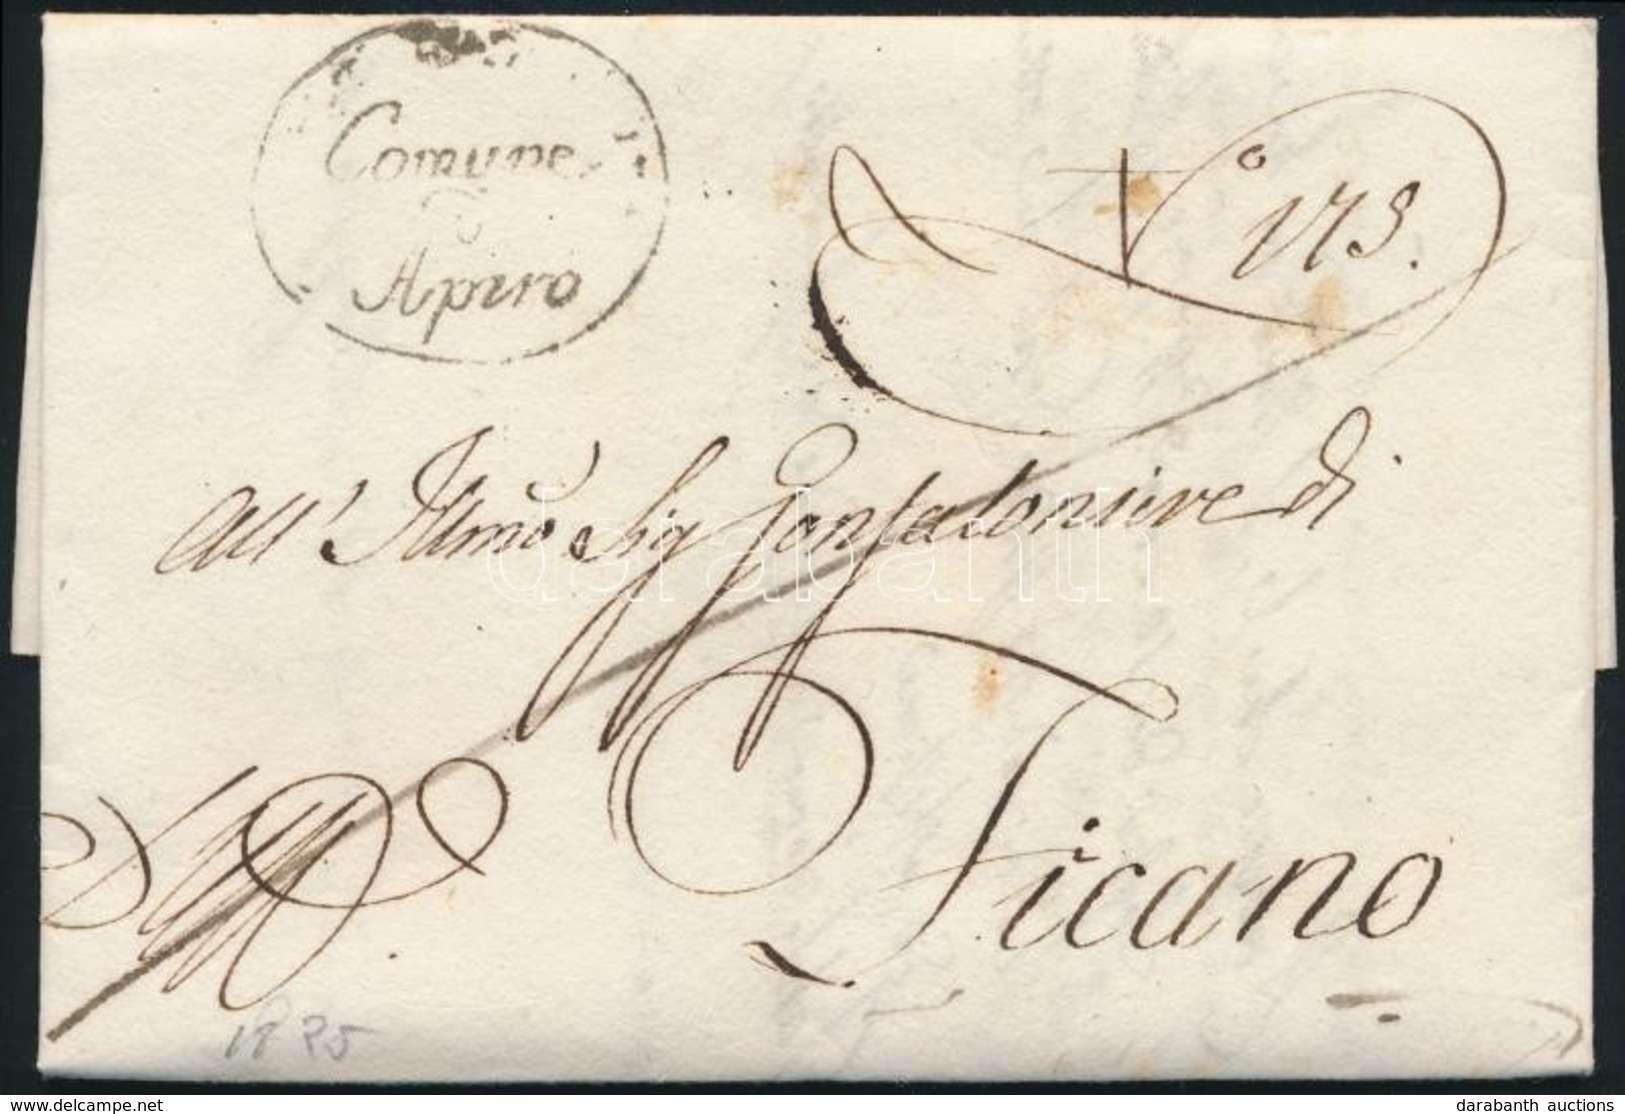 Comune
di
Apiro
N.° 173.
All' Illmo Sig Gonfaloniere di
Ficano
1825
darabanth
www.delcampe.net
darabanth auctions